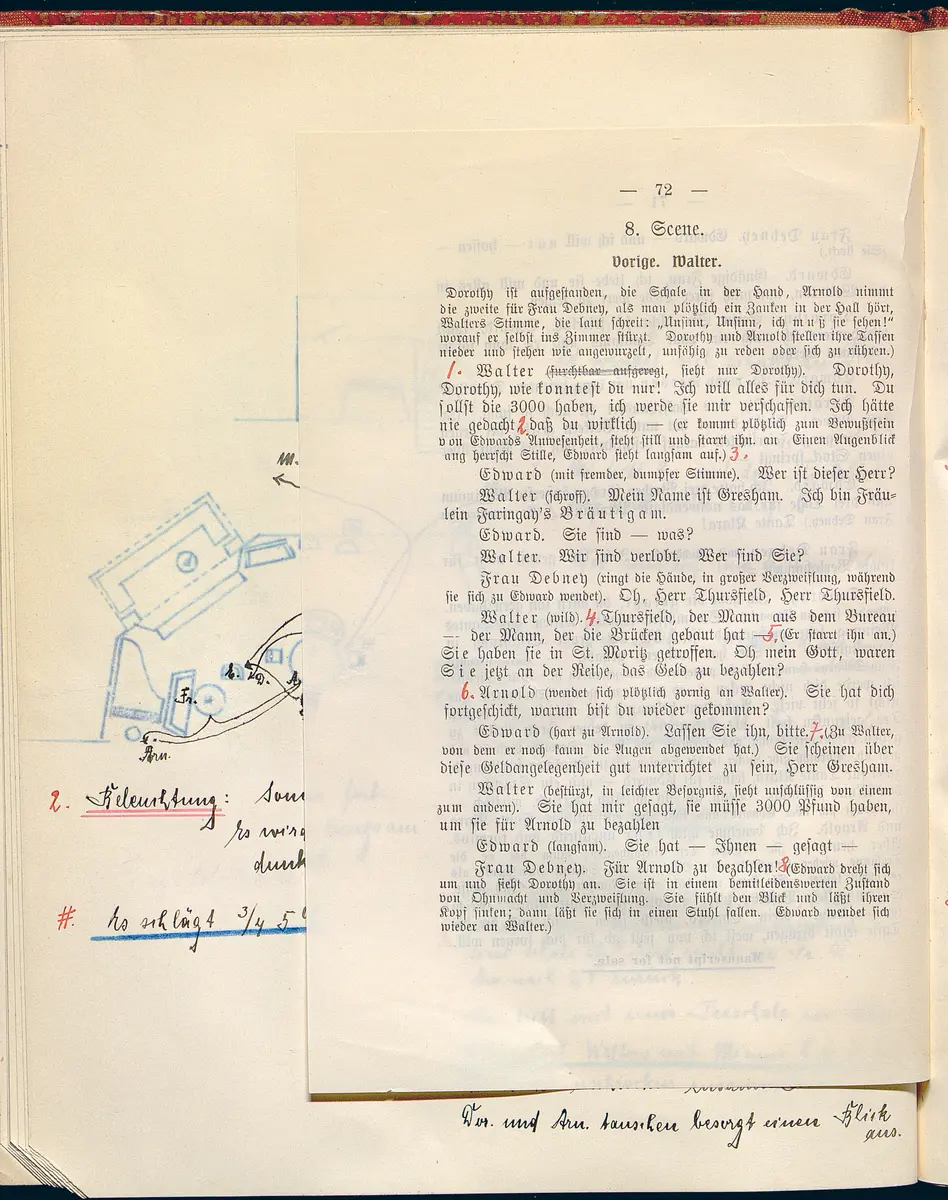 — 72 —
8. Scene.
Vorige. Walter.
Dorothy ist aufgestanden, die Schale in der Hand, Arnold nimmt
die zweite für Frau Debney, als man plötzlich ein Zanken in der Hall hört,
Walters Stimme, die laut schreit: „Unsinn, Unsinn, ich muß sie sehen!“
worauf er selbst ins Zimmer stürzt. Dorothy und Arnold stellen ihre Tassen
nieder und stehen wie angewurzelt, unfähig zu reden oder sich zu rühren.)
1. Walter (furchtbar aufgeregt, sieht nur Dorothy). Dorothy,
Dorothy, wie konntest du nur! Ich will alles für dich tun. Du
sollst die 3000 haben, ich werde sie mir verschaffen. Ich hätte
nie gedacht 2 daß du wirklich — (er kommt plötzlich zum Bewußtsein
von Edwards Anwesenheit, steht still und starrt ihn. an Einen Augenblick
ang herrscht Stille, Edward steht langsam auf.) 3.
Edward (mit fremder, dumpfer Stimme). Wer ist dieser Herr?
Walter (schroff). Mein Name ist Gresham. Ich bin Fräu-
lein Faringay's Bräutigam.
Edward. Sie sind — was?
Walter. Wir sind verlobt. Wer sind Sie?
Frau Debney (ringt die Hände, in großer Verzweiflung, während
sie sich zu Edward wendet). Oh, Herr Thursfield, Herr Thursfield.
Walter (wild). 4. Thursfield, der Mann aus dem Bureau
— der Mann, der die Brücken gebaut hat — 5. (Er starrt ihn an.)
Sie haben sie in St. Moritz getroffen. Oh mein Gott, waren
Sie jetzt an der Reihe, das Geld zu bezahlen?
6. Arnold (wendet sich plötzlich zornig an Walter). Sie hat dich
fortgeschickt, warum bist du wieder gekommen?
Edward (hart zu Arnold). Lassen Sie ihn, bitte. 7. (Zu Walter,
von dem er noch kaum die Augen abgewendet hat.) Sie scheinen über
diese Geldangelegenheit gut unterrichtet zu sein, Herr Gresham.
Walter (bestürzt, in leichter Besorgnis, sieht unschlüssig von einem
zum andern). Sie hat mir gesagt, sie müsse 3000 Pfund haben,
um sie für Arnold zu bezahlen
Edward (langsam). Sie hat — Ihnen — gesagt —
Frau Debney. Für Arnold zu bezahlen! 8 (Edward dreht sich
um und sieht Dorothy an. Sie ist in einem bemitleidenswerten Zustand
von Ohnmacht und Verzweiflung. Sie fühlt den Blick und läßt ihren
Kopf sinken; dann läßt sie sich in einen Stuhl fallen. Edward wendet sich
wieder an Walter.)
Manuscript not for sale.
Fr.
E.
D.
Arn.
2. Beleuchtung:
Es wird
dunk
#. Es schlägt 3/4 5
Dor. und Arn. tauschen besorgt einen Blick
aus.